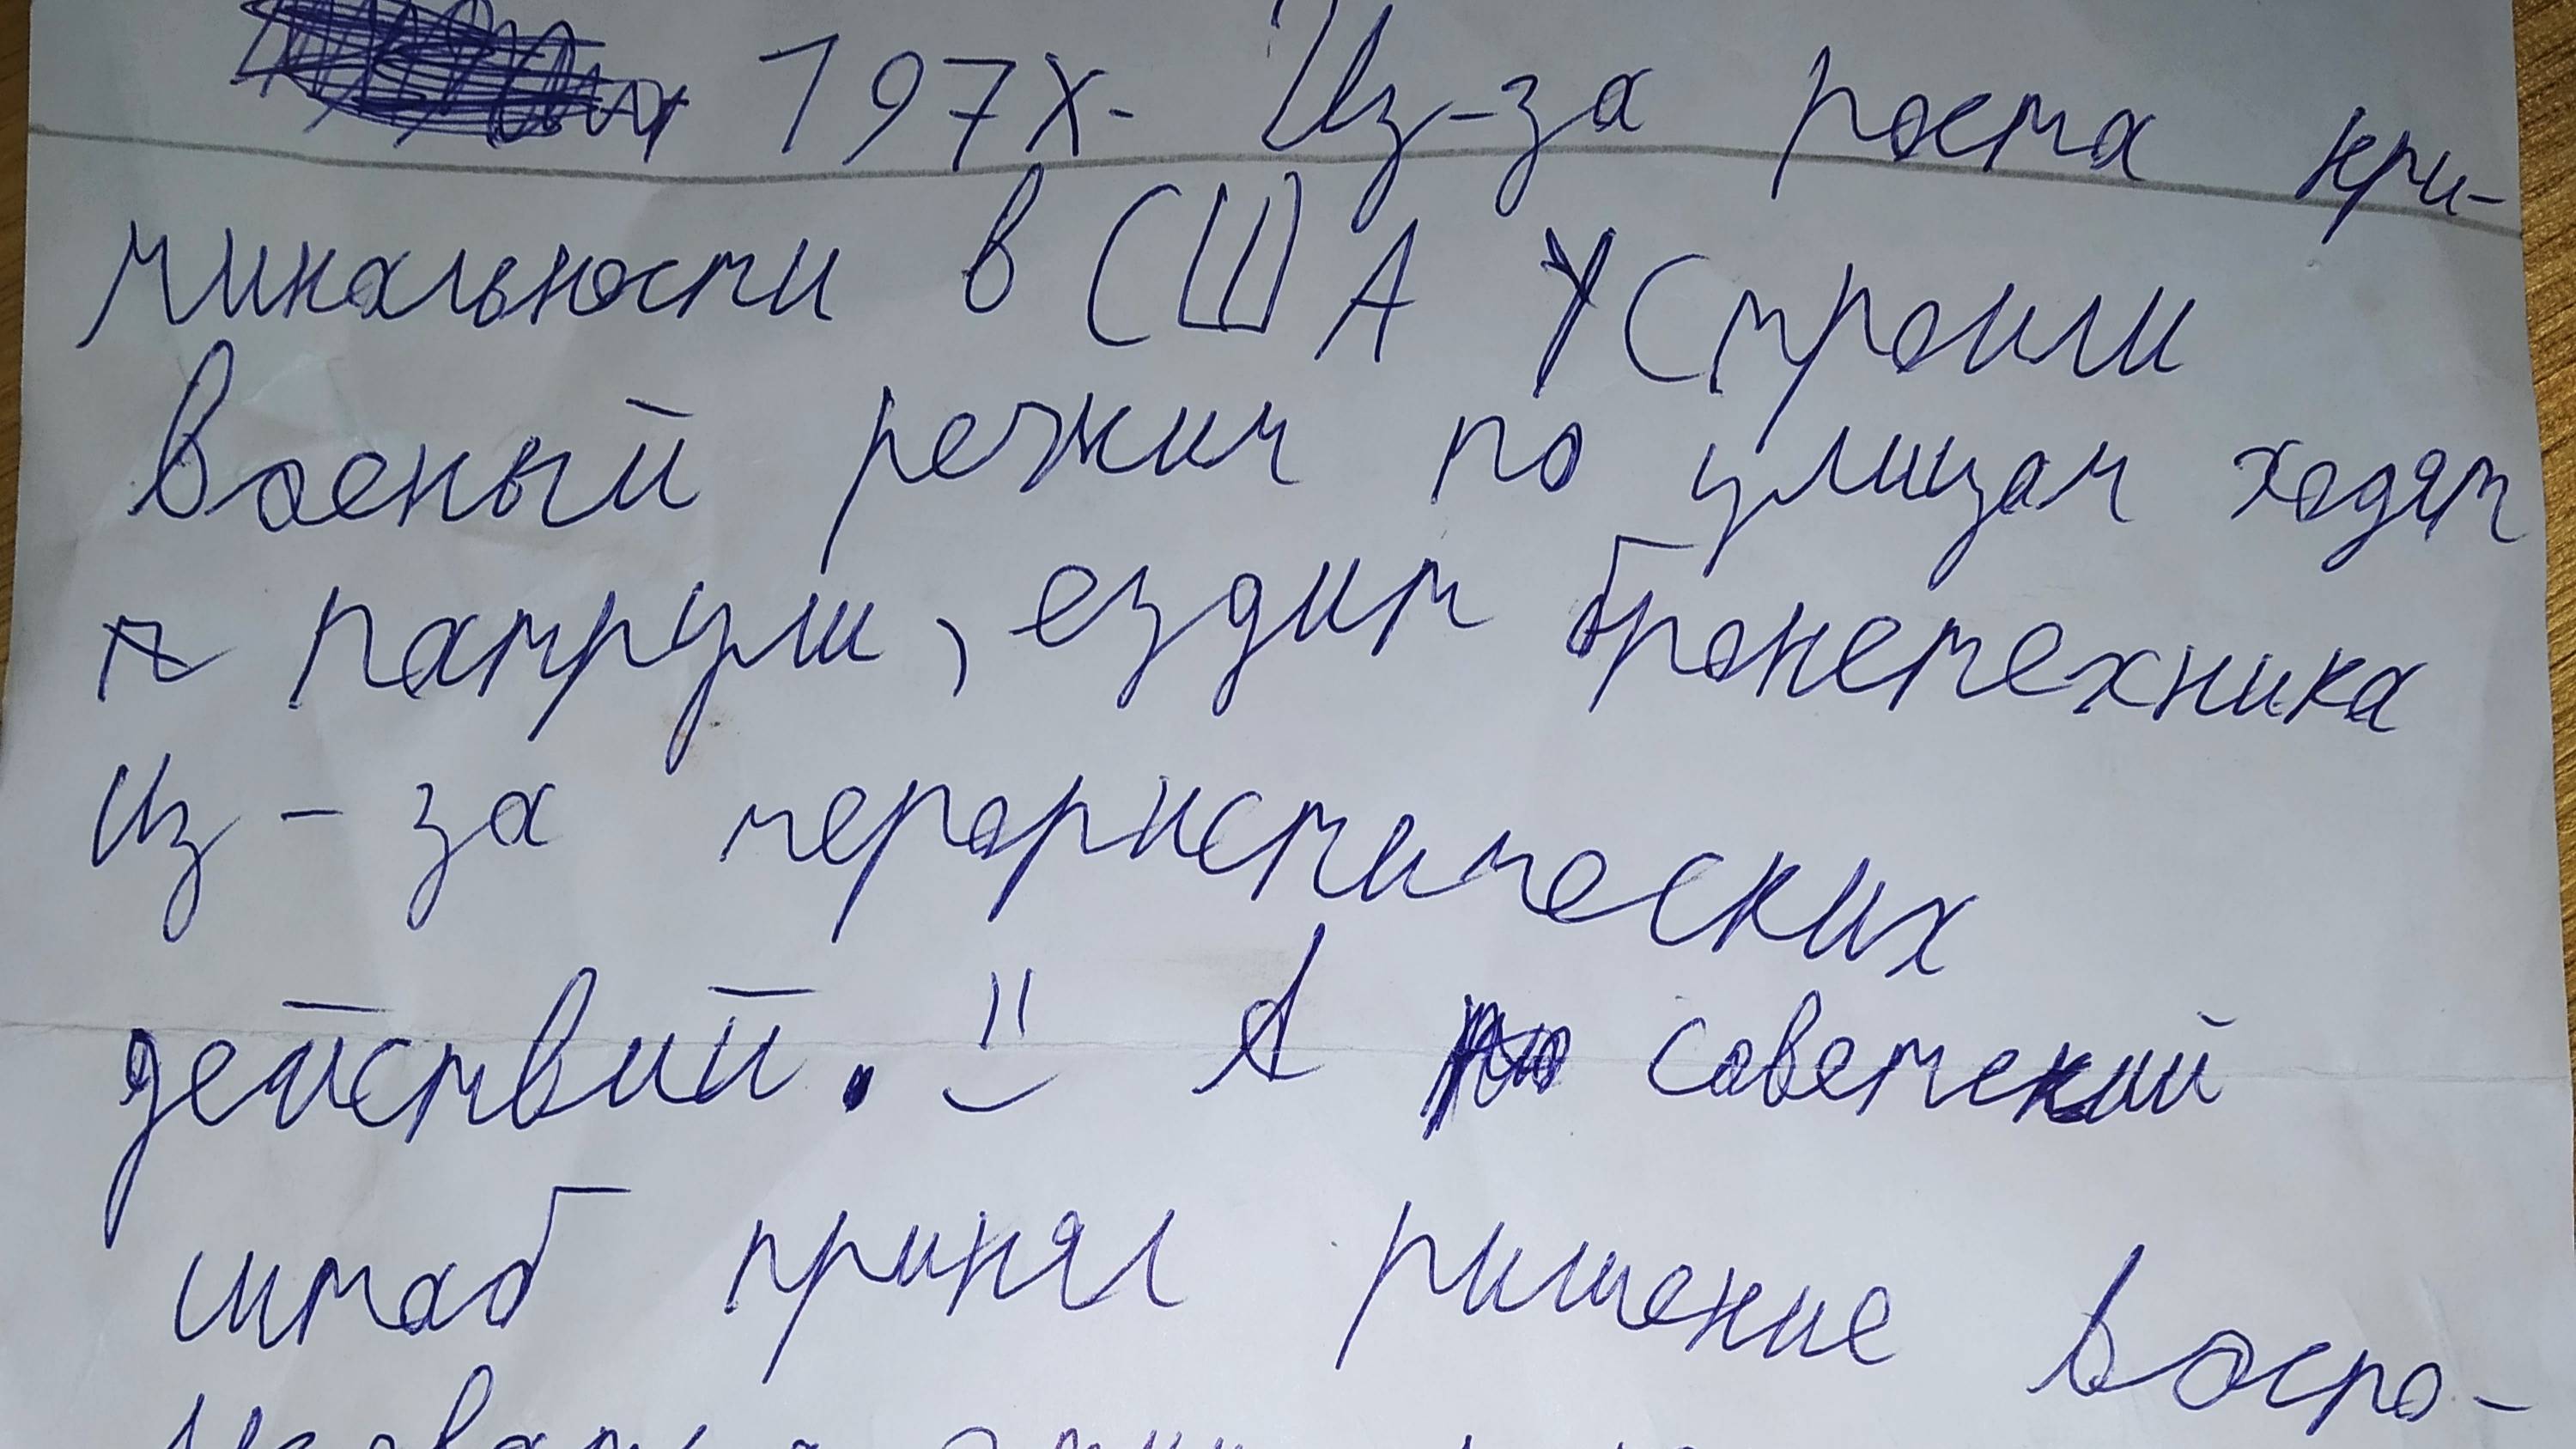 197х- Из-за роста кри-
минальности в США устроили
военый режим по улицам ходят
патрули, ездит бронетехника
из-за терористических
действий. А советский
штаб принял ришение воспо-